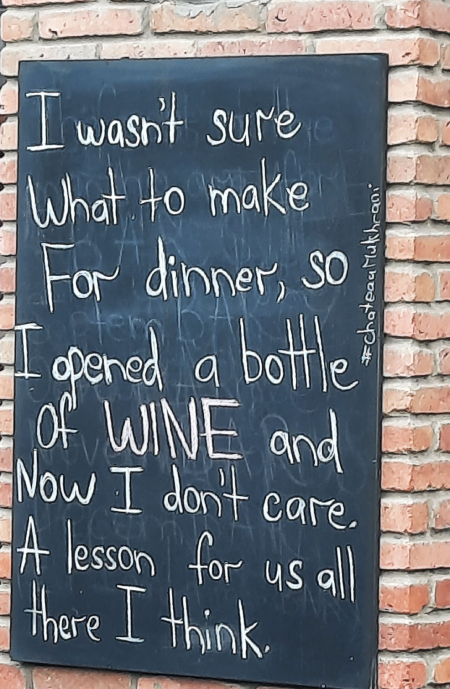 I wasn't sure
What to make
For dinner, so
I opened a bottle
Of WINE and
Now I don't care.
A lesson for us all
there I think.
#chateauMukhrani